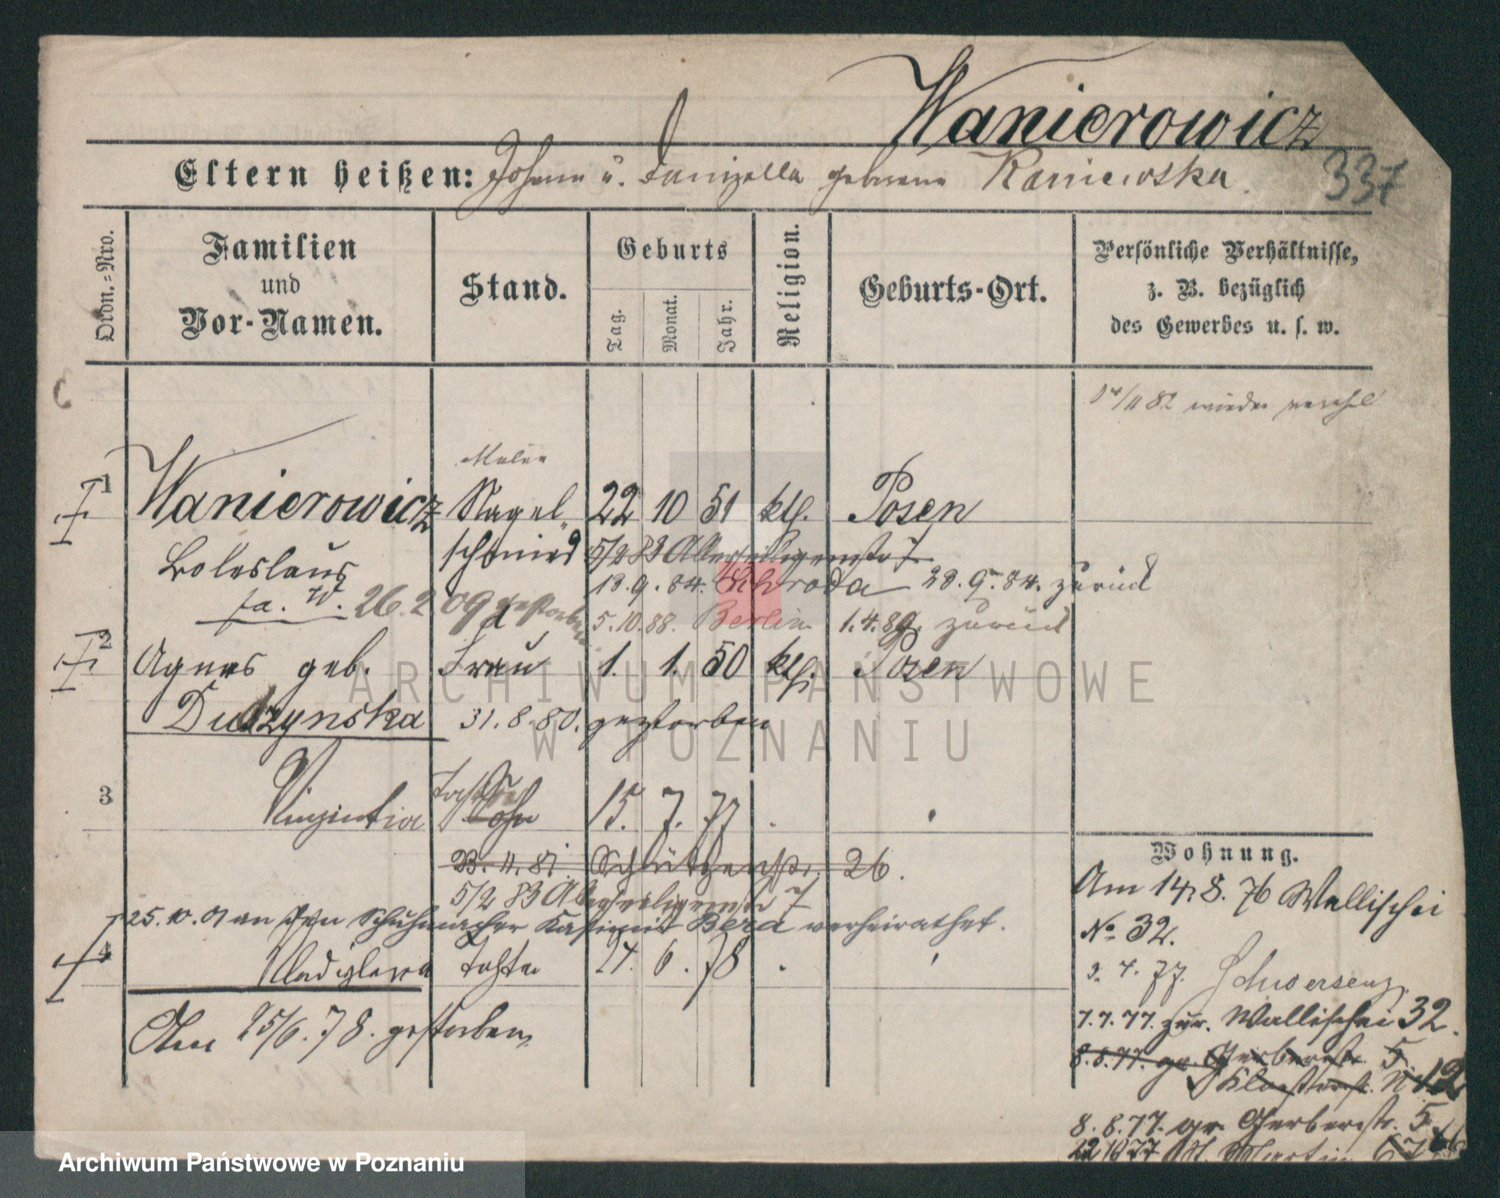 Wanierowicz
Eltern heißen: Johann u. Danizella geborene Raniewska.
337
Ordn.-Nro.
Familien
und
Vor-Namen.
Stand.
Geburts
Tag.
Monat.
Jahr.
Religion.
Geburts-Ort.
Persönliche Verhältnisse,
z. B. bezüglich
des Gewerbes u. s. w.
11 82 wieder verehel
1
Maler
Wanierowicz Nagel 22 10 51 kth. Posen
Boleslaus schmied 5/2 83 Allerheiligenstr 7
13.9.84. Schroda 28.9.84. zurück
26.2 09 gestorben 5.10.88. Berlin 1.4.89. zurück
2
Agnes geb. Frau 1. 1. 50 kth. Posen
Duszynska 31.8.80. gestorben
3
Vinzentia Tochter Sohn 15. 7. 77
23.11.81 Schützenstr. 26.
5/2 83 Allerheiligenstr 7
25.10.01 an den Schuhmacher Kasimir Bera verheirathet.
4
Wladislawa Tochter 24. 6. 78
Am 25/6.78. gestorben
Wohnung.
Am 14.8.76 Wallischei
No. 32.
3.4.77. Schwersenz.
7.7.77. zur. Wallischei 32.
8.8.77. gr. Gerberstr. 5
Klosterstr. N 12
8.8.77. gr. Gerberstr. 5
22 10 77 St. Martin
ARCHIWUM PAŃSTWOWE
W POZNANIU
Archiwum Państwowe w Poznaniu